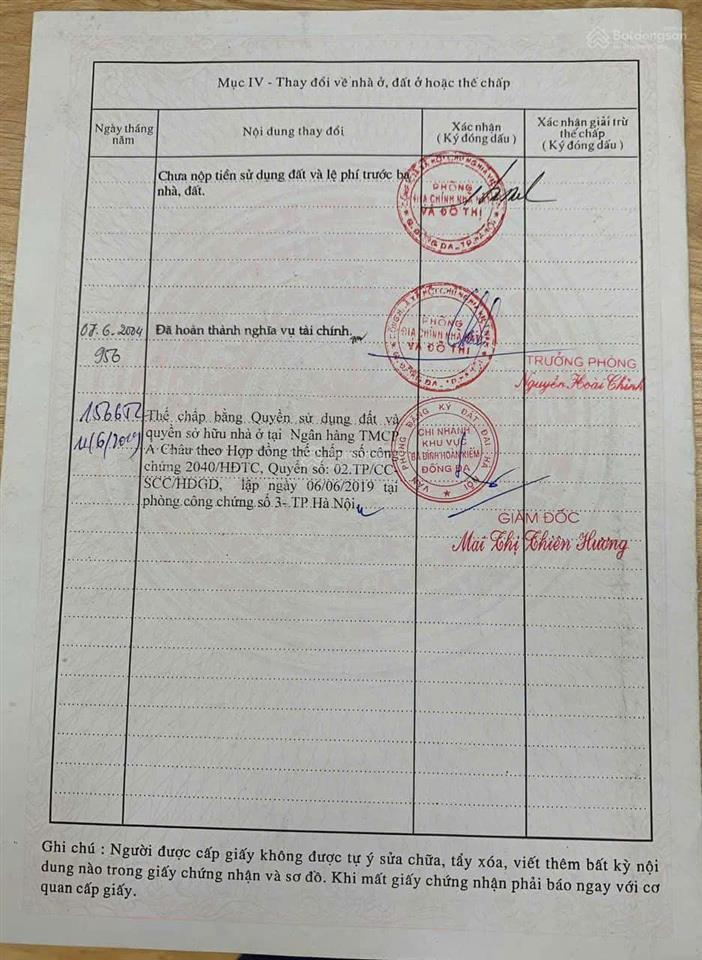 Batdongsan
Mục IV - Thay đổi về nhà ở, đất ở hoặc thế chấp
Ngày tháng
năm
Nội dung thay đổi
Xác nhận
( Ký đóng dấu )
Xác nhận giải trừ
thế chấp
( Ký đóng dấu )
Chưa nộp tiền sử dụng đất và lệ phí trước bạ
nhà, đất.
PHÒNG
ĐỊA CHÍNH NHÀ ĐẤT
VÀ ĐÔ THỊ
Q. ĐỐNG ĐA - T.P HÀ NỘI
07.6.2004
956
Đã hoàn thành nghĩa vụ tài chính.
PHÒNG
ĐỊA CHÍNH NHÀ ĐẤT
VÀ ĐÔ THỊ
Q. ĐỐNG ĐA - T.P HÀ NỘI
TRƯỞNG PHÒNG
Nguyễn Hoài Chinh
11/6/2019
Thế chấp bằng Quyền sử dụng đất và
quyền sở hữu nhà ở tại Ngân hàng TMCP
Á Châu theo Hợp đồng thế chấp số công
chứng 2040/HĐTC, Quyển số: 02.TP/CC-
SCC/HĐGD, lập ngày 06/06/2019 tại
phòng công chứng số 3- TP Hà Nội
VĂN PHÒNG ĐĂNG KÝ ĐẤT ĐAI HÀ NỘI
CHI NHÁNH
KHU VỰC
BA ĐÌNH HOÀN KIẾM
ĐỐNG ĐA
GIÁM ĐỐC
Mai Thị Thiên Hương
Ghi chú : Người được cấp giấy không được tự ý sửa chữa, tẩy xóa, viết thêm bất kỳ nội
dung nào trong giấy chứng nhận và sơ đồ. Khi mất giấy chứng nhận phải báo ngay với cơ
quan cấp giấy.